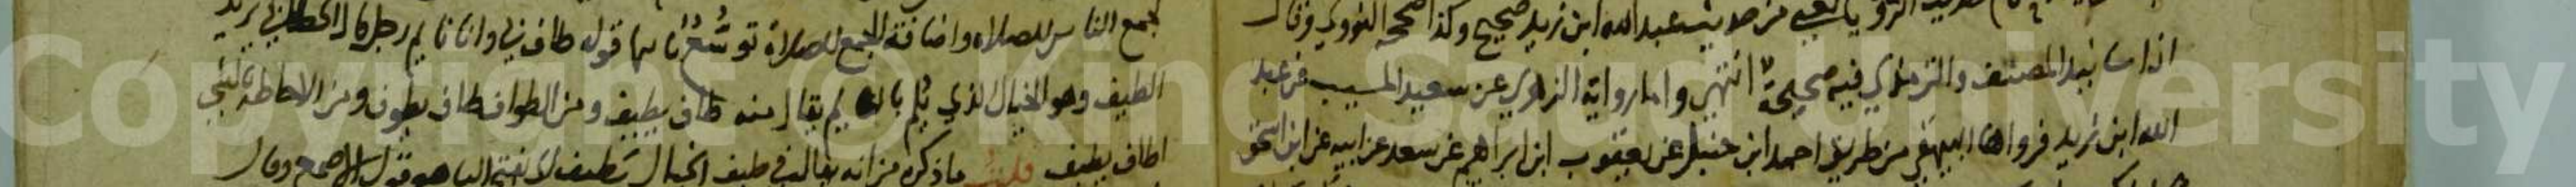 من حديث عبد الله ابن زيد صحيح وكذا صححه النووي وقال
اذ اسانيد المصنف والترمذي فيه صحيحة انتهى واما رواية الزهري عن سعيد المسيب عن عبد
الله ابن زيد فرواها البيهقي من طريق احمد ابن حنبل عن يعقوب ابن ابراهيم عن سعد عن ابيه عن ابن اسحق
لجمع الناس للصلاة واضافة الجمع للصلاة توسعا قوله طاف بي وانا نايم رجل قال الخطابي يريد
الطيف وهو الخيال الذي يلم بالنايم يقال منه طاف يطيف ومن الطواف طاف يطوف ومن الاحاطة بالشي
اطاف يطيف قلت ما ذكره من انه يقال في طيف الخيال يطيف بفتح اليا هو قول الاصمعي وقال
Copyright © King Saud University